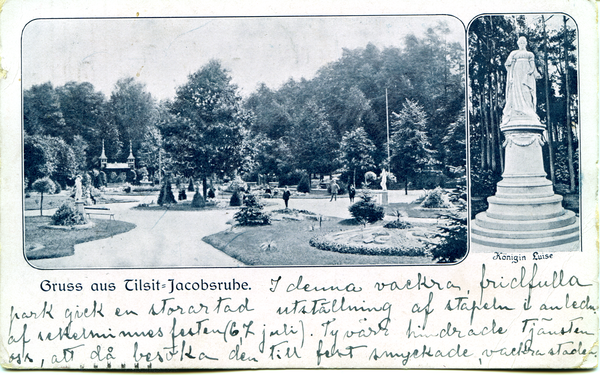 Königin Luise
Gruss aus Tilsit-Jacobsruhe. I denna vackra, fridfulla
park gick en storartad utställning af stapeln i anledn.
af sekelminnesfesten (6,7 juli). Tyvärr hindrade tjänsten
oss, att då besöka den till fest smyckade, vackra staden